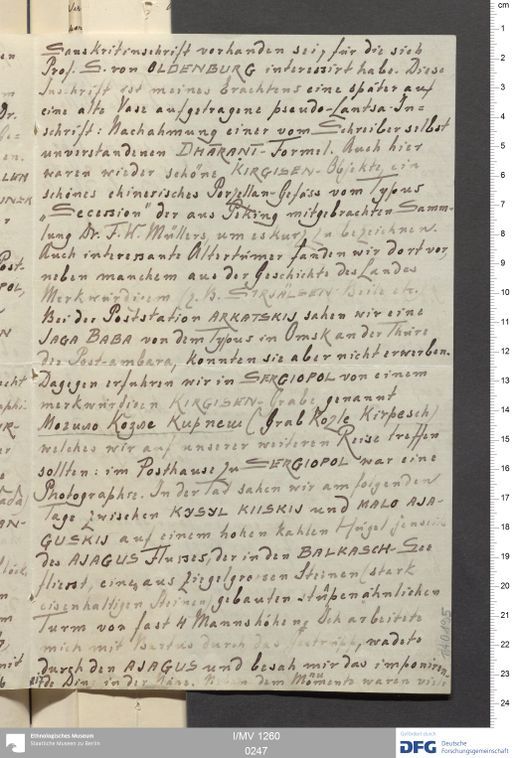 Sanskritinschrift vorhanden sei, für die sich
Prof. S. von OLDENBURG interessirt habe. Diese
Inschrift ist meines Erachtens eine später auf
eine alte Vase aufgetragene pseudo-Lantsa-In=
schrift: Nachahmung einer vom Schreiber selbst
unverstandenen DHĀRAṆI-Formel. Auch hier
waren wieder schöne KIRGISEN-Objekte, ein
schönes chinesisches Porzellan-Gefäss vom Typus
„Secession" der aus Peking mitgebrachten Samm=
lung Dr. F. W. Müllers, um es kurz zu bezeichnen.
Auch interessante Altertümer fanden wir dort vor,
neben manchem aus der Geschichte des Landes
Merkwürdigem (z. B. Beile etc.
Bei der Poststation ARKATSKIJ sahen wir eine
JAGA BABA von dem Typus in Omsk an der Thüre
der Post-ambara, konnten sie aber nicht erwerben.
Dagegen erfuhren wir in SERGIOPOL von einem
merkwürdigen KIRGISEN-Grabe genannt
(Grab Kozle Kirpesch)
welches wir auf unserer weiteren Reise treffen
sollten: im Posthause zu SERGIOPOL war eine
Photographie. In der Tad sahen wir am folgenden
Tage zwischen KYSYL KIISKIJ und MALO AJA-
GUSKIJ auf einem hohen kahlen Hügel jenseits
des AJAGUS Flusses, der in den BALKASCH-See
fliesst, einen aus Ziegelgrossen Steinen (stark
eisenhaltigen Steinen) gebauten stūpenähnlichen
Turm von fast 4 Mannshöhen. Ich arbeitete
mich mit Bartus durch das, watete
durch den AJAGUS und besah mir das imponiren-
de Ding in der Nähe. dem waren viele
I/MV 1260
0247
Ethnologisches Museum
Staatliche Museen zu Berlin
Gefördert durch
DFG Deutsche
Forschungsgemeinschaft
cm
1
2
3
4
5
6
7
8
9
10
11
12
13
14
15
16
17
18
19
20
21
22
23
24